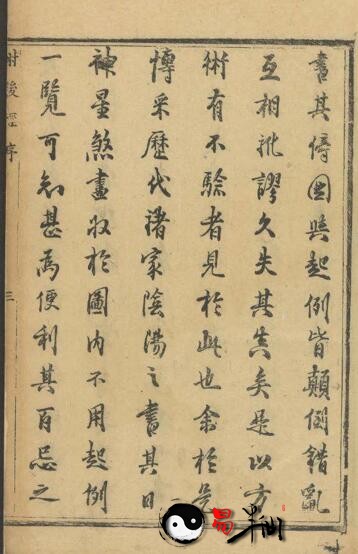 書其僃圖與起例皆顛倒錯亂
互相訛謬久失其真矣是以方
術有不驗者見於此也余於是
愽采歷代諸家陰陽之書其日
神星煞盡收於圖內不用起例
一覽可知甚為便利其百忌之
肘後經序
三
易半仙